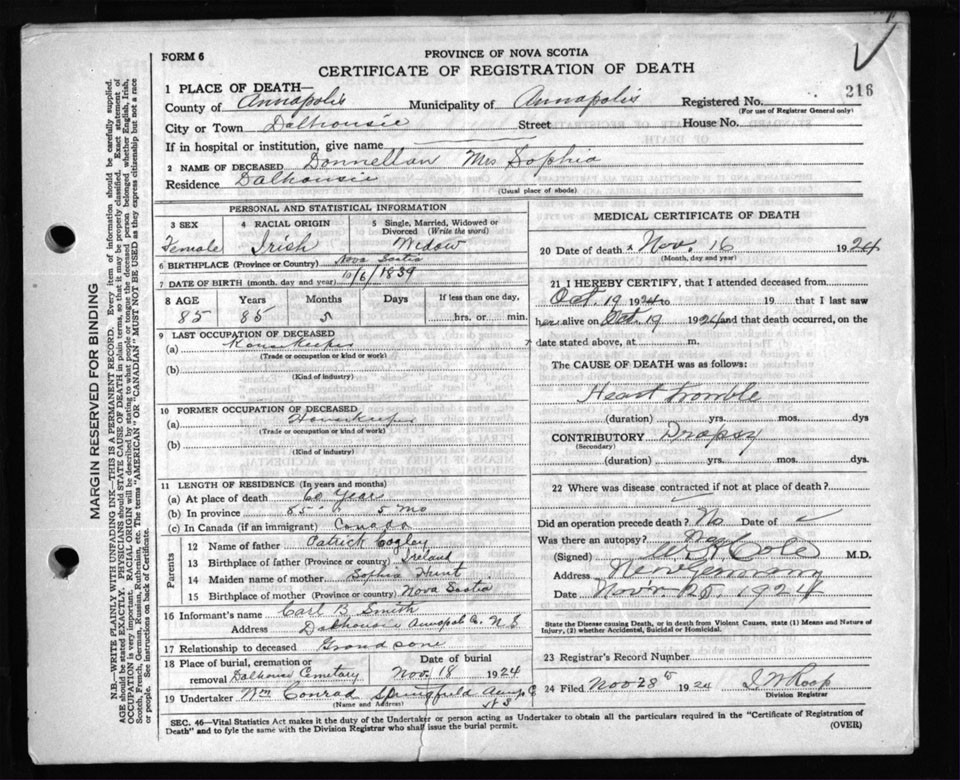 FORM 6
PROVINCE OF NOVA SCOTIA
CERTIFICATE OF REGISTRATION OF DEATH
216
1 PLACE OF DEATH—
County of Annapolis Municipality of Annapolis Registered No.
(For use of Registrar General only)
City or Town Dalhousie Street House No.
If in hospital or institution, give name
2 NAME OF DECEASED Donnellan Mrs Sophia
Residence Dalhousie
(Usual place of abode)
PERSONAL AND STATISTICAL INFORMATION
3 SEX 4 RACIAL ORIGIN 5 Single, Married, Widowed or Divorced (Write the word)
Female Irish Widow
6 BIRTHPLACE (Province or Country) Nova Scotia
7 DATE OF BIRTH (month, day and year) 10/6/1839
8 AGE Years Months Days If less than one day,
85 85 5 hrs. or min.
9 LAST OCCUPATION OF DECEASED
(a) Housekeeper
(Trade or occupation or kind or work)
(b)
(Kind of industry)
10 FORMER OCCUPATION OF DECEASED
(a) Housekeeper
(Trade or occupation or kind or work)
(b)
(Kind of industry)
11 LENGTH OF RESIDENCE (In years and months)
(a) At place of death 60 Years
(b) In province 85 " 5 mo
(c) In Canada (if an immigrant) Canada
Parents
12 Name of father Patrick Cogley
13 Birthplace of father (Province or country) Ireland
14 Maiden name of mother Sophia Hunt
15 Birthplace of mother (Province or country) Nova Scotia
16 Informant's name Carl B Smith
Address Dalhousie Annapolis Co. N S
17 Relationship to deceased Grand sone
18 Place of burial, cremation or removal Dalhousie Cemetary
Date of burial Nov. 18 1924
19 Undertaker Wm Conrad Springfield Annap C
N S
(Name and Address)
MEDICAL CERTIFICATE OF DEATH
20 Date of death Nov. 16 1924
(Month, day and year)
21 I HEREBY CERTIFY, that I attended deceased from
Oct. 19 1924 to 19 that I last saw
her alive on Oct. 19 1924 and that death occurred, on the
date stated above, at m.
The CAUSE OF DEATH was as follows:
Heart trouble
(duration) yrs. mos. dys
CONTRIBUTORY Dropsy
(Secondary)
(duration) yrs. mos. dys.
22 Where was disease contracted if not at place of death?
Did an operation precede death? No Date of
Was there an autopsy? No
(Signed) Cole M.D.
Address New Germany
Date Nov'r. 25. 1924
State the Disease causing Death, or in death from Violent Causes, state (1) Means and Nature of Injury, (2) whether Accidental, Suicidal or Homicidal.
23 Registrar's Record Number
24 Filed Nov 28 1924 I W Roop
Division Registrar
SEC. 46—Vital Statistics Act makes it the duty of the Undertaker or person acting as Undertaker to obtain all the particulars required in the "Certificate of Registration of
Death" and to fyle the same with the Division Registrar who shall issue the burial permit. (OVER)
MARGIN RESERVED FOR BINDING
N.B.—WRITE PLAINLY WITH UNFADING INK—THIS IS A PERMANENT RECORD. Every item of information should be carefully supplied.
AGE should be stated EXACTLY. PHYSICIANS should STATE CAUSE OF DEATH in plain terms, so that it may be properly classified. Exact statement of
OCCUPATION is very important. RACIAL ORIGIN will be described by stating to what people or tongue the deceased person belonged whether English, Irish,
Scotch, French, German, Russian, Ruthenian, etc. The terms "AMERICAN" OR "CANADIAN" MUST NOT BE USED as they express citizenship but not a race
or people. See instructions on back of Certificate.